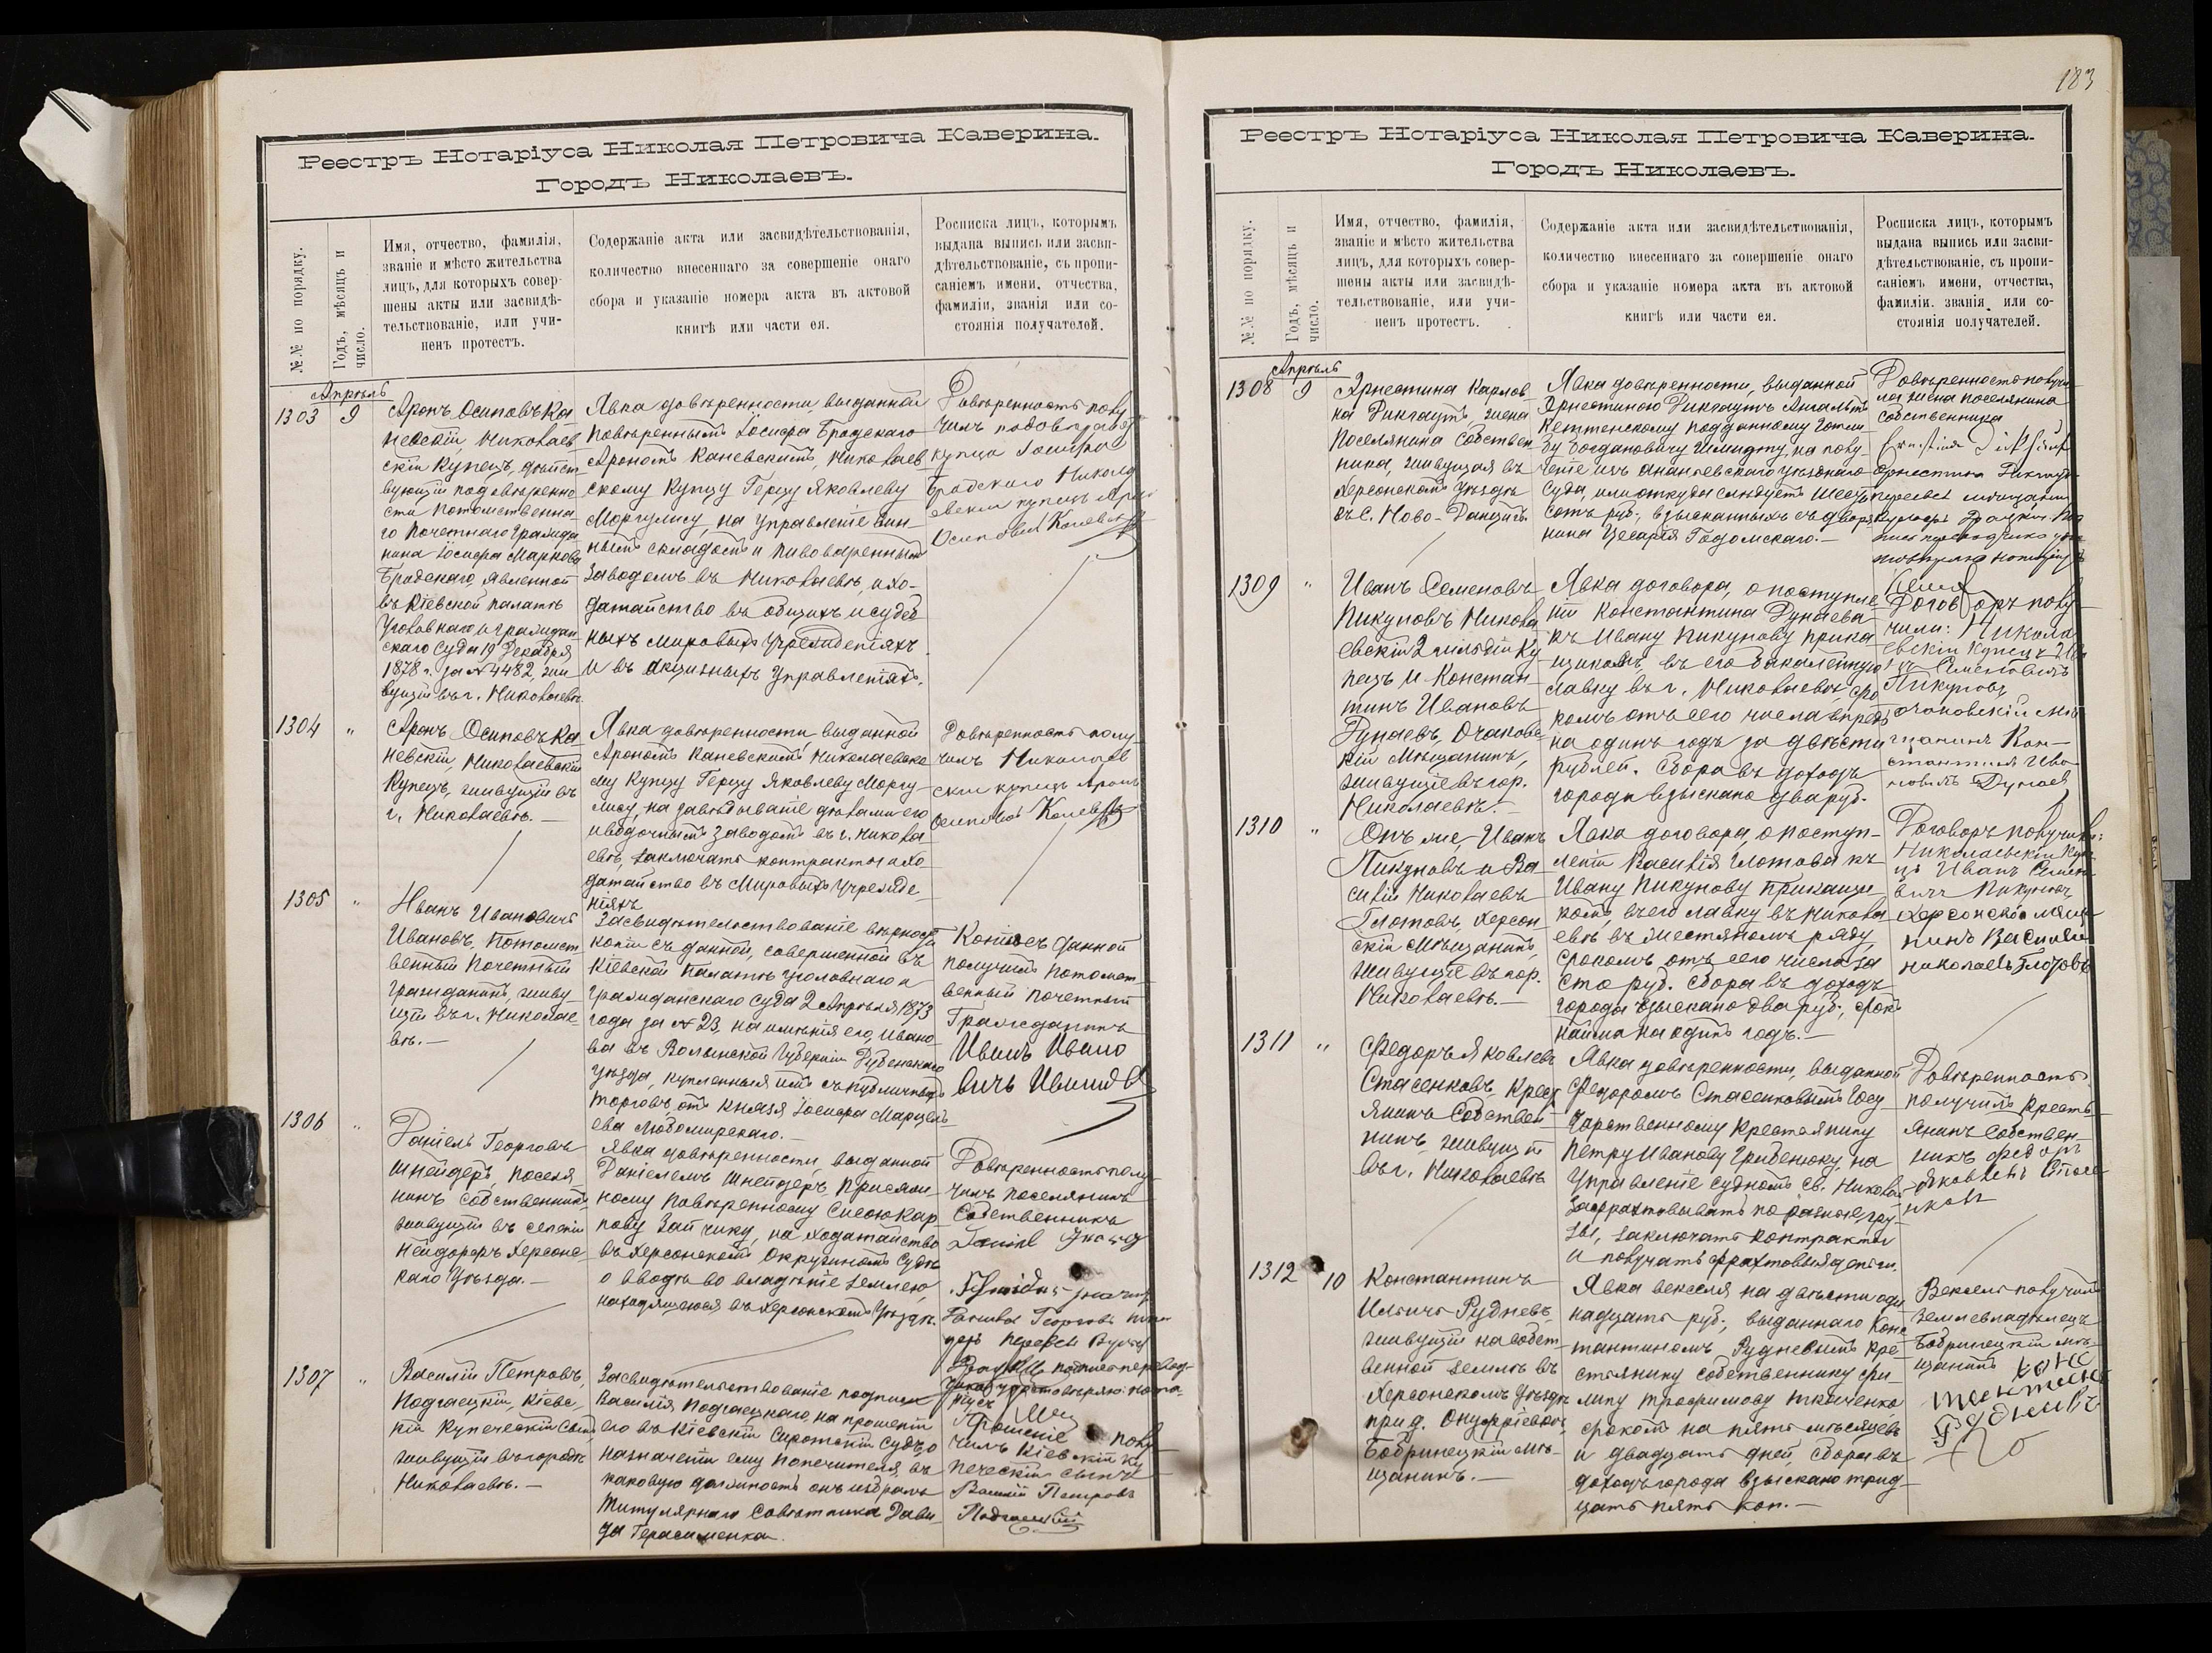 Реестръ Нотаріуса Николая Петровича Каверина.
Городъ Николаевъ.
№№ по порядку.
Годъ, мѣсяцъ и
число.
Имя, отчество, фамилія,
званіе и мѣсто жительства
лицъ, для которыхъ совер-
шены акты или засвидѣ-
тельствованіе, или учи-
ненъ протестъ.
Содержаніе акта или засвидѣтельствованія,
количество внесеннаго за совершеніе онаго
сбора и указаніе номера акта въ актовой
книгѣ или части ея.
Росписка лицъ, которымъ
выдана выпись или засви-
дѣтельствованіе, съ пропи-
саніемъ имени, отчества,
фамиліи, званія или со-
стоянія получателей.
Апрѣль
1303 9
Аронъ Осиповъ Ка
невскій, Николаев
скій Купецъ, дѣйст
вующій по довѣренно
сти Потомственна-
го Почетнаго Гражда
нина Іосифа Маркова
Бродскаго, явленной
въ Кіевской палатѣ
Уголовнаго и Граждан
скаго Суда 19 Декабря
1878 г. за № 4482, жи
вущій въ г. Николаевѣ.
Явка довѣренности, выданной
Повѣреннымъ Іосифа Бродскаго
Арономъ Каневскимъ, Николаев
скому Купцу Герцу Яковлеву
Моргулису, на управленіе вин-
нымъ складомъ и пивовареннымъ
заводомъ въ Николаевѣ, и хо-
датайство въ общихъ и судеб
ныхъ Мировыхъ Учрежденіяхъ
и въ акцизныхъ Управленіяхъ.
Довѣренность полу
чилъ по довѣр
купца Іосифа
Бродскаго Никола
евскій купецъ Аронъ
Осиповъ Каневскій
1304 "
Аронъ Осиповъ Ка
невскій, Николаевскій
Купецъ, живущій въ
г. Николаевѣ. —
Явка довѣренности, выданной
Арономъ Каневскимъ Николаевско
му Купцу Герцу Яковлеву Моргу-
лису, на завѣдываніе дѣлами его
и водочнымъ заводомъ въ г. Никола
евѣ, заключать контракты и хо-
датайство въ Мировыхъ Учрежде-
ніяхъ
Довѣренность полу
чилъ Николаев
скій купецъ Аронъ
Осиповъ Каневскій
1305 "
Иванъ Ивановичъ
Ивановъ, Потомст
венный Почетный
Гражданинъ, живу-
щій въ г. Николае
вѣ. —
Засвидѣтельствованіе вѣрности
копіи съ данной, совершенной въ
Кіевской Палатѣ Уголовнаго и
Гражданскаго Суда 2 Апрѣля 1873
года за № 23, на имѣнія его, Ивано-
ва въ Волынской Губерніи Дубенскаго
уѣзда, купленныя имъ съ публичныхъ
торговъ, отъ Князя Іосифа Марцел
ева Любомирскаго. —
Копію съ данной
получилъ потомст
венный почетный
Гражданинъ
Иванъ Ивано
вичъ Ивановъ
1306 "
Даніель Георговъ
Шнейдеръ, поселя-
нинъ собственникъ,
живущій въ селеніи
Нейдорфъ Херсонс
каго Уѣзда. —
Явка довѣренности, выданной
Даніелемъ Шнейдеръ, Присяж-
ному Повѣренному Сисою Кар
пову Зайчику, на ходатайство
въ Херсонскомъ Окружномъ Судѣ
о вводѣ во владѣніе землею,
находящеюся въ Херсонскомъ Уѣздѣ.
Довѣренность полу
чилъ поселянинъ
собственникъ
1307 "
Василій Петровъ
Подгаецкій, Кіевс-
кій Купеческій Сынъ,
живущій въ городѣ
Николаевѣ. —
Засвидѣтельствованіе подписи
Василія Подгаецкаго, на прошеніи
его въ Кіевскій Сиротскій Судъ, о
назначеніи ему попечителя, въ
каковую должность онъ избралъ
Титулярнаго Совѣтника Дави-
да Герасименка.
Прошеніе полу
чилъ Кіевскій Ку
печескій сынъ
Василій Петровъ
Подгаецкій
183
Реестръ Нотаріуса Николая Петровича Каверина.
Городъ Николаевъ.
№№ по порядку.
Годъ, мѣсяцъ и
число.
Имя, отчество, фамилія,
званіе и мѣсто жительства
лицъ, для которыхъ совер-
шены акты или засвидѣ-
тельствованіе, или учи-
ненъ протестъ.
Содержаніе акта или засвидѣтельствованія,
количество внесеннаго за совершеніе онаго
сбора и указаніе номера акта въ актовой
книгѣ или части ея.
Росписка лицъ, которымъ
выдана выпись или засви-
дѣтельствованіе, съ пропи-
саніемъ имени, отчества,
фамиліи, званія или со-
стоянія получателей.
Апрѣль
1308 9
Эрнестина Карлов
на Дикгаутъ, жена
Поселянина Собствен
ника, живущая въ
Херсонскомъ Уѣздѣ
въ С. Ново-Данцигъ.
Явка довѣренности, выданной
Эрнестиною Дикгаутъ Ангальтъ
Кеттенскому подданному Готли
бу Богдановичу Шмидту, на полу-
ченіе изъ Ананьевскаго уѣзднаго
Суда, или откуда слѣдуетъ шесть
сотъ руб., взысканныхъ съ дворя
нина Цезарія Годомскаго. —
Довѣренность получи
ла жена поселянина
собственника
1309 "
Иванъ Семеновъ
Пикуновъ Никола
евскій 2 гильдіи Ку
пецъ и Констан
тинъ Ивановъ
Дунаевъ, Очаковс
кій Мѣщанинъ,
живущіе въ гор.
Николаевѣ. —
Явка договора, о поступле
ніи Константина Дунаева
къ Ивану Пикунову прика
щикомъ, въ его бакалейную
лавку въ г. Николаевѣ, сро
комъ отъ сего числа впредь
на одинъ годъ за двѣсти
рублей. Сбора въ доходъ
города взыскано два руб.
Договоръ полу
чили: Никола
евскій купецъ Ива
нъ Семеновичъ
Пикуновъ
Очаковскій мѣ
щанинъ Кон-
стантинъ Ива
новъ Дунаев
1310 "
Онъ же, Иванъ
Пикуновъ и Ва
силій Николаевъ
Глотовъ, Херсон
скій Мѣщанинъ,
живущіе въ гор.
Николаевѣ. —
Явка договора, о поступ-
леніи Василія Глотова къ
Ивану Пикунову прикащи
комъ, въ его лавку въ Никола
евѣ въ Жестяномъ ряду,
срокомъ отъ сего числа за
сто руб. Сбора въ доходъ
города взыскано два руб., срокъ
найма на одинъ годъ. —
Договоръ получили:
Николаевскій Купе
цъ Иванъ Семено
вичъ Пикуновъ
Херсонскій мѣща
нинъ Василій
Николаевъ Глотовъ
1311 "
Федоръ Яковлевъ
Стасенковъ, Крест
янинъ Собствен-
никъ, живущій
въ г. Николаевѣ
Явка довѣренности, выданной
Федоромъ Стасенковымъ Госу
дарственному Крестьянину
Петру Иванову Грибенюку, на
Управленіе судномъ Св. Николай
зафрахтовывать по разные гру-
зы, заключать контракты
и получать фрахтовыя деньги.
Довѣренность
получилъ Кресть
янинъ Собствен-
никъ Федоръ
Яковлевъ Стасе
нковъ
1312 10
Константинъ
Ильичъ Рудневъ,
живущій на собст
венной землѣ въ
Херсонскомъ Уѣздѣ
при д. Онуфріевкѣ,
Бобринецкій мѣ-
щанинъ. —
Явка векселя на двѣсти оди
надцать руб., выданнаго Конс
тантиномъ Рудневымъ кре-
стьянину собственнику Фи-
липу Трофимову Ткаченко
срокомъ на пять мѣсяцевъ
и двадцать дней, сбора въ
доходъ города взыскано трид-
цать пять коп. —
Вексель получилъ
землевладѣлецъ
Бобринецкій мѣ-
щанинъ Конс
тантинъ
Рудневъ